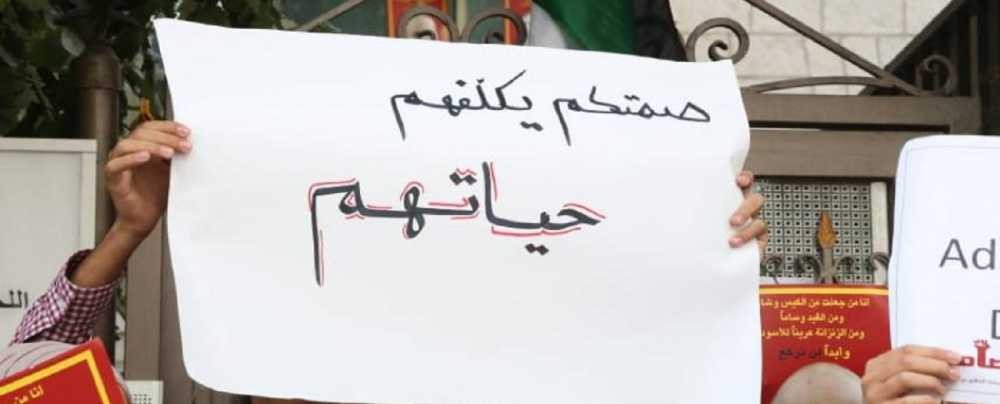 صمتكم يكلّفهم
حياتهم
انا من جعلت من الكيس وشا
ومن القيد وساماً
ومن الزنزانة عريناً للأسود
وابداً لن نركع
Ad
انا من